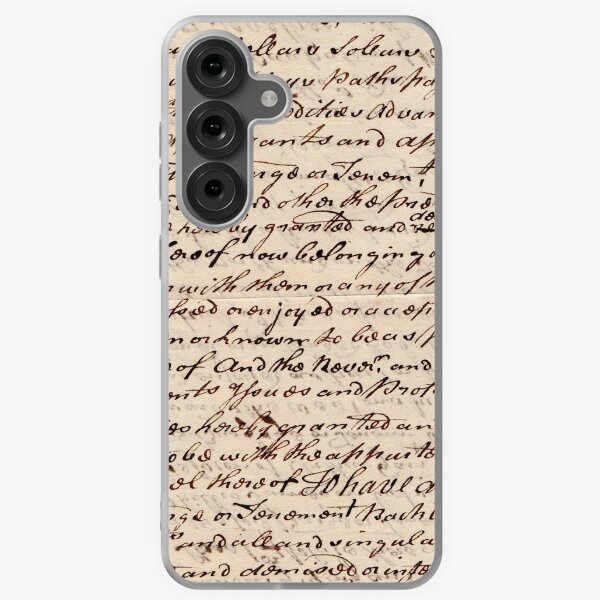 Sollars Solears
Paths
dities Advan
ants and ap
or Tenemt
nd other the Pre
de
hereby granted and re
hereof now belonging
with them or any of
sed or enjoyed or accep
or known to be as
of And the Revern and
nts Yssues and Prof
hereby granted an
to be with the appurte
el thereof To have a
ge or Tenement Back
and all and singula
and demised or inte